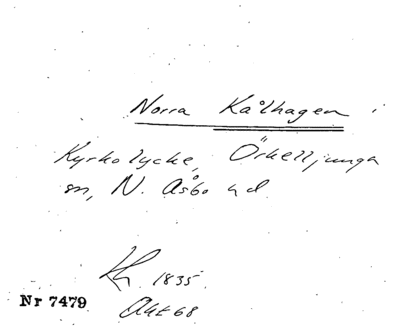 Norra Kålhagen
Kyrkolycke, Örkelljunga
sn, N. Åsbo hd
Kh 1835.
Nr 7479
Akt 68